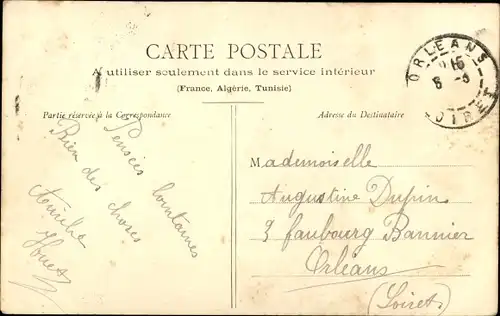 CARTE POSTALE
A utiliser seulement dans le service intérieur
(France, Algérie, Tunisie)
Partie réservée à la Correspondance
Adresse du Destinataire
ORLEANS
LOIRET
Pensées lointaines
Bien des choses
Mademoiselle
Augustine Dupin
3 faubourg Bannier
Orléans
(Loiret)